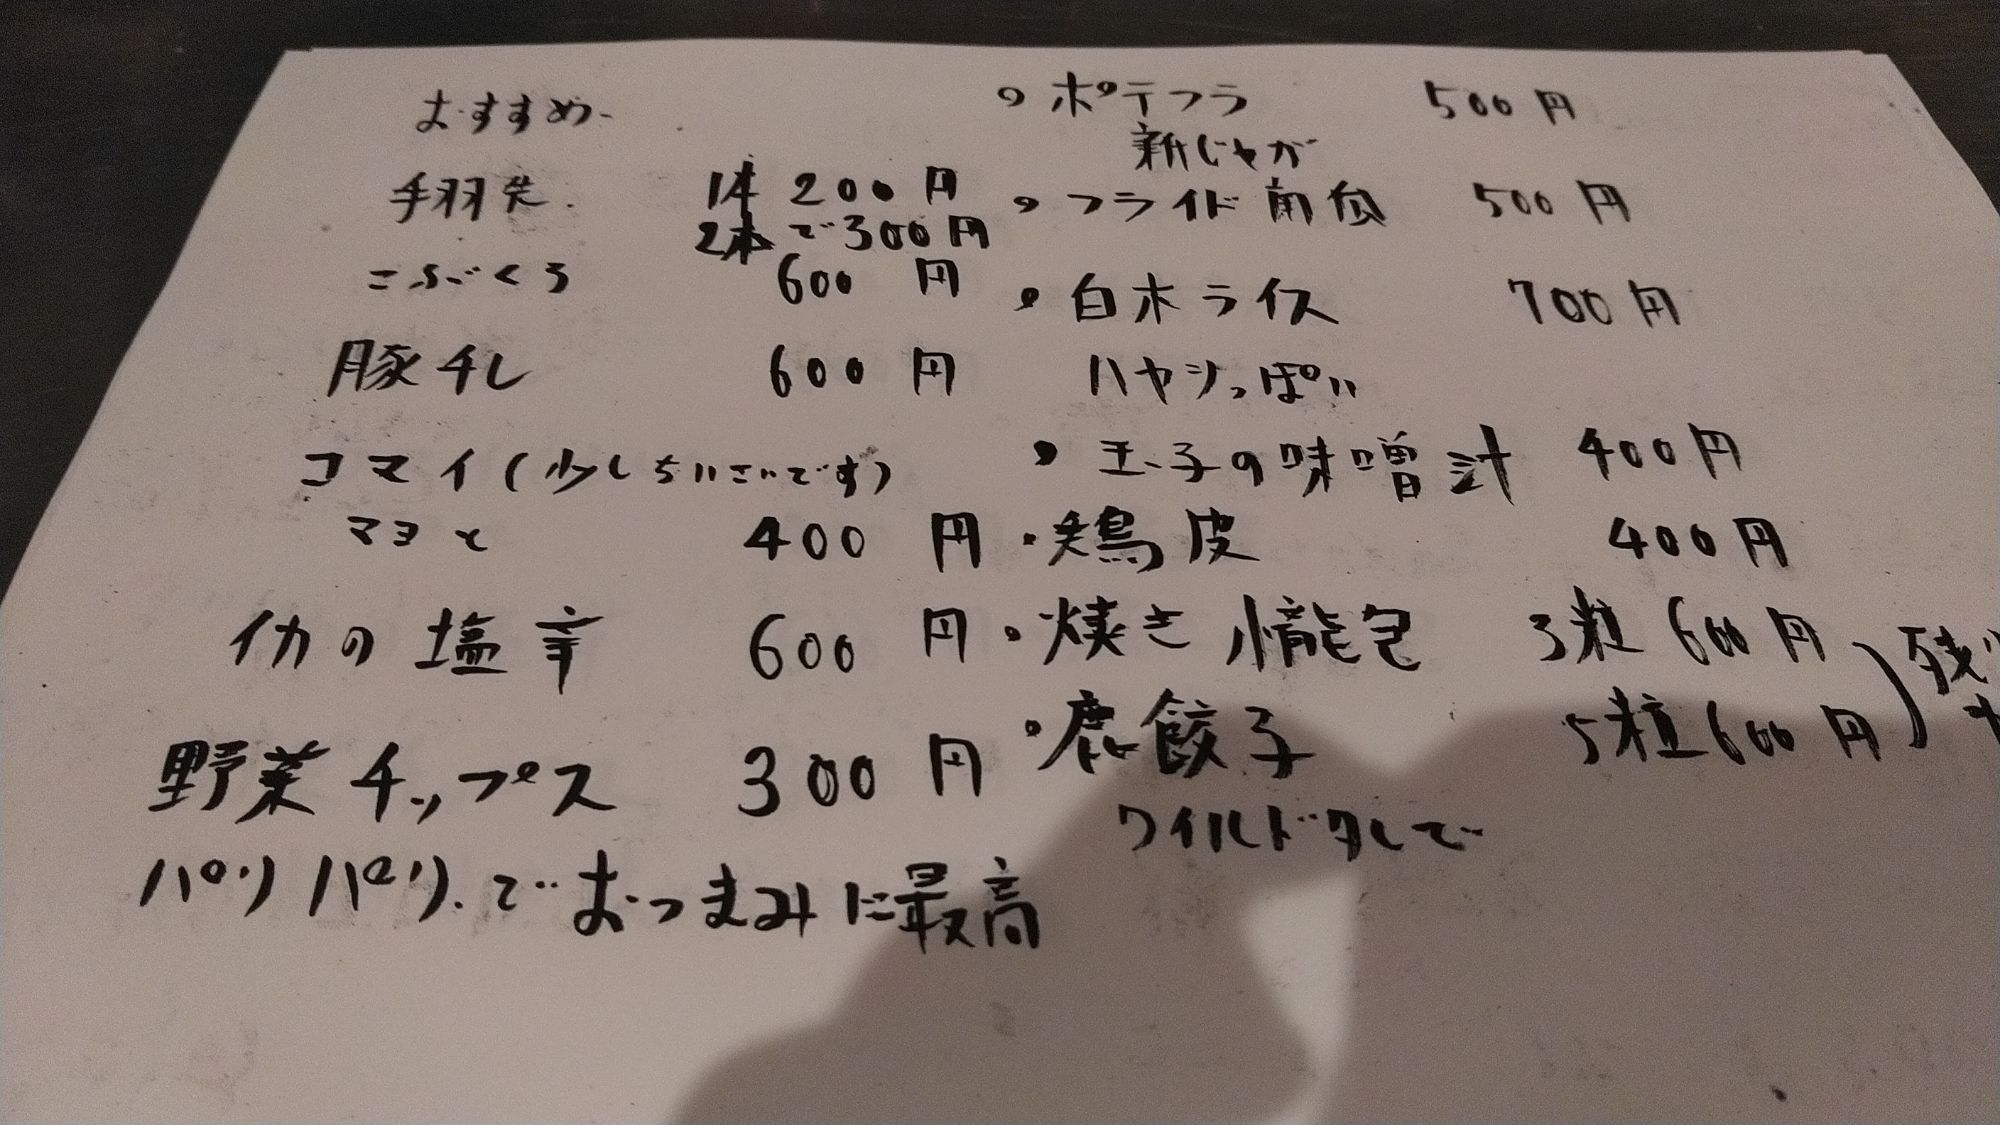 おすすめ
手羽先 1本 200円
2本で300円
こぶくろ 600円
豚チレ 600円
コマイ(少しちいさいです)
マヨと 400円
イカの塩辛 600円
野菜チップス 300円
パリパリでおつまみに最高
・ポテフラ 500円
新じゃが
・フライド南瓜 500円
・白ホライス 700円
ハヤシっぽい
・玉子の味噌汁 400円
・鶏皮 400円
・焼き小籠包 3粒 600円
・鹿餃子 5粒 600円
ワイルド